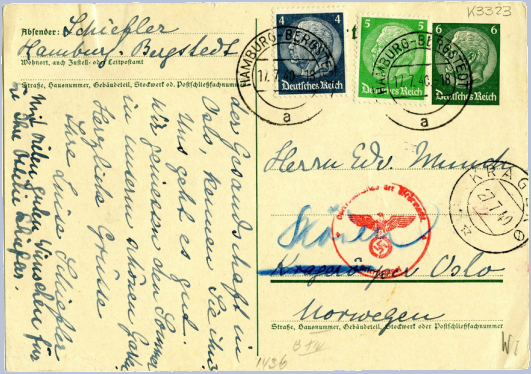 K3323
Absender: Schiefler
Hamburg-Bergstedt
Wohnort, auch Zustell- oder Leitpostamt
Straße, Hausnummer, Gebäudeteil, Stockwerk od. Postschließfachnummer
4 4
Deutsches Reich
5 5
Deutsches Reich
6 6
Deutsches Reich
HAMBURG-BERGSTEDT
17.7.40.-18
a
HAMBURG-BERGSTEDT
17.7.40.-18
a
der Gesandschaft in
Oslo, kennen Sie ihn?
Uns geht es gut.
Wir geniessen den Sommer
in unserm schönen Garten
Herzliche Grüsse
Ihre Luise Schiefler
Mit vielen guten Wünschen für
Sie Ihre Ottilie Schiefler.
Herrn Edv. Munch
Skøien
Kragerö per Oslo
Norwegen
KRAGERØ
7.40
Straße, Hausnummer, Gebäudeteil, Stockwerk oder Postschließfachnummer
1436